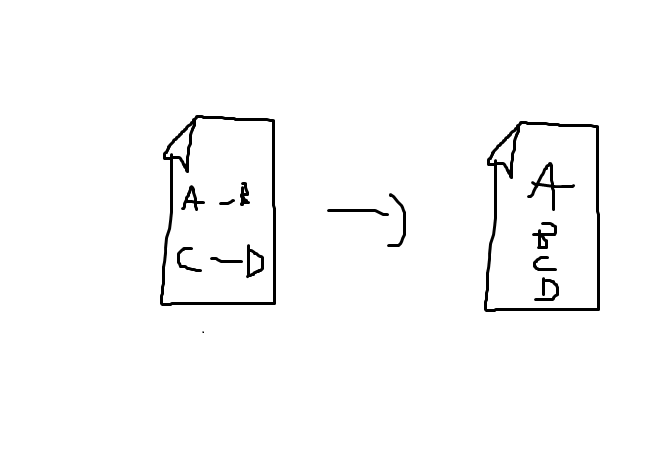 A - B
C - D
A
B
C
D